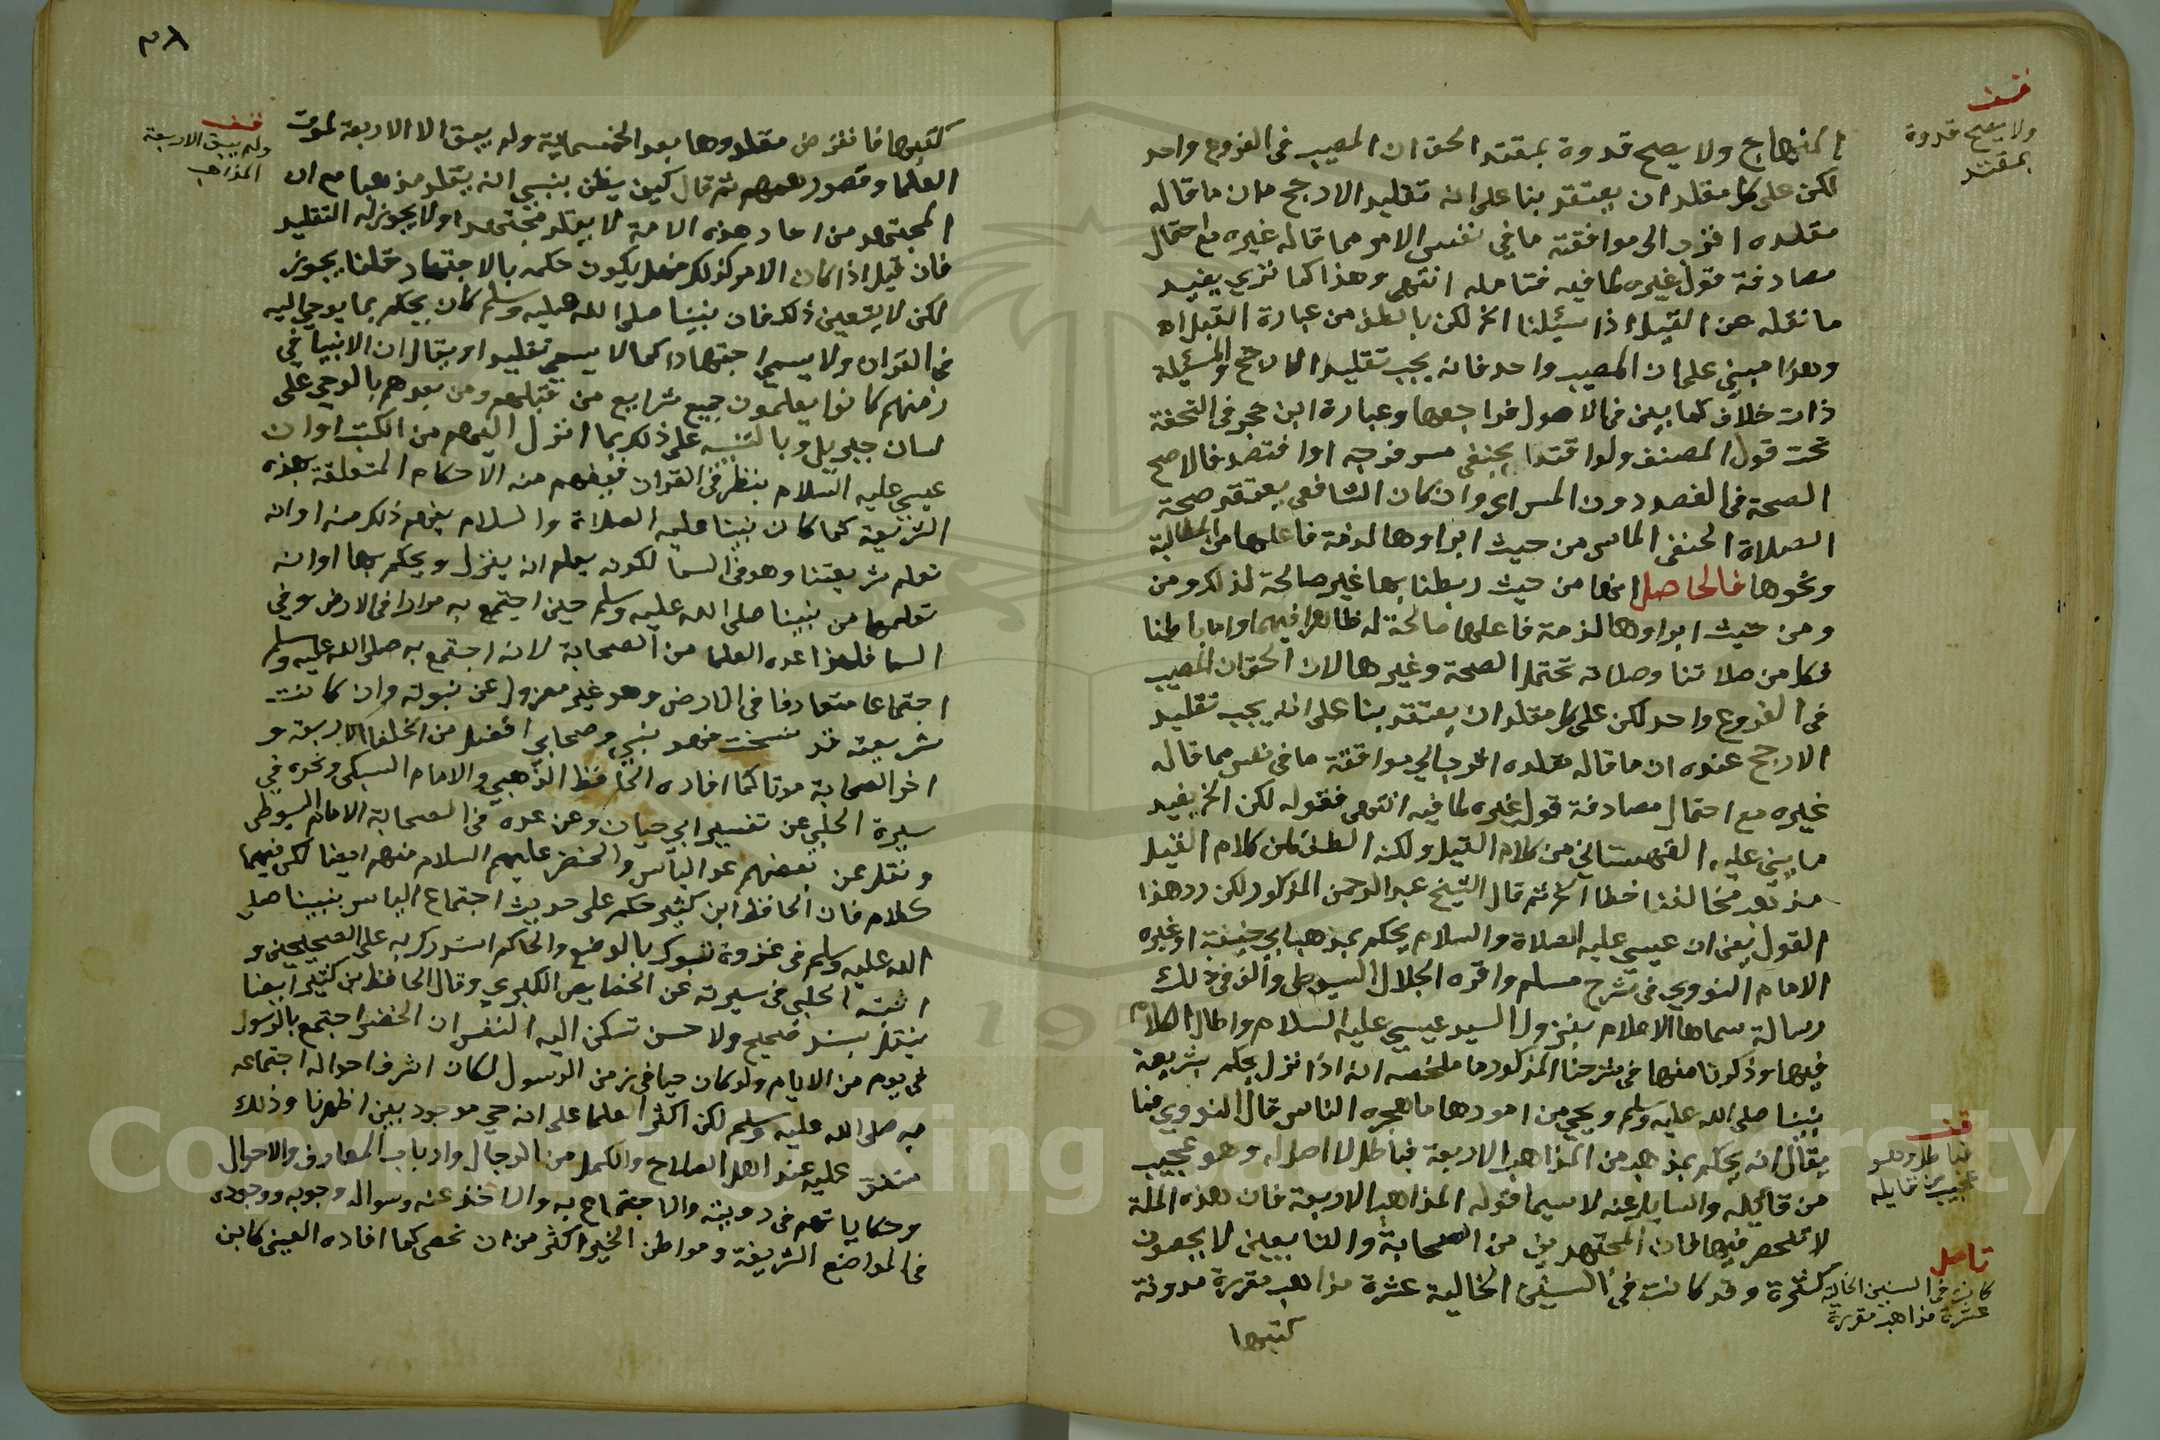 قف
ولا يصح قدوة
بمقتد
المنهاج ولا يصح قدوة بمقتد الحق ان المصيب في الفروع واحد
لكن على كل مقلد ان يعتقد بنا على انه تقليد الارجح مان ما قاله
مقلده اقرب الى موافقة ما في نفس الامر مما قاله غيره مع احتمال
مصادفة قول غيره لما فيه فتامله انتهى وهذا كما تري يفيد
ما نقله عن القيل اذا سئلنا الخ لكن بالطف من عبارة القيل اه
وهذا مبني على ان المصيب واحد فانه يجب تقليد الارجح والمسئلة
ذات خلاف كما بين في الاصول فراجعها وعبارة ابن حجر في التحفة
تحت قول المصنف ولو اقتدا بحنفي مس فرجه او افتصد فالاصح
الصحة في الفصد دون المس اي وان كان الشافعي يعتقد صحة
الصلاة الحنفي الماس من حيث ابراوها لذمة فاعلها من المطالبة
ونحوها فالحاصل انها من حيث ربطنا بها غير صالحة لذلك ومن
ومن حيث ابراوها لذمة فاعلها صالحة له ظاهرا فيهما واما باطنا
فكل من صلاتنا وصلاته تحتمل الصحة وغيرها لان الحق ان المصيب
في الفروع واحد لكن على كل مقلد ان يعتقد بنا على انه يجب تقليد
الارجح عنده ان ما قاله مقلده اقرب الي موافقة ما في نفس مما قاله
غيره مع احتمال مصادفة قول غيره لما فيه انتهى فقوله لكن الخ يفيد
ما بني عليه القهستاني من كلام القيل ولكنه الطف من كلام القيل
مذهب مخالفنا خطا الخ ثم قال الشيخ عبد الرحمن المذكور لكن رد هذا
القول يعني ان عيسى عليه الصلاة والسلام يحكم بمذهب ابي حنيفة او غيره
الامام النووي في شرح مسلم واقره الجلال السيوطي والف في ذلك
رسالة سماها الاعلام بنزول السيد عيسى عليه السلام واطال الكلام
فيها وذكرنا منها في شرحنا المذكور ما ملخصه انه اذا نزل يحكم بشريعة
نبينا صلى الله عليه وسلم ويحيي من امورها ما هجره الناس قال النووي فما
يقال انه يحكم بمذهب من المذاهب الاربعة فباطل لا اصل له وهو عجيب
من قايله والسايل عنه لا سيما قوله المذاهب الاربعة فان هذه الملة
لا تنحصر فيها لان المجتهدين من الصحابة والتابعين لا يحصون
كثرة وقد كانت في السنين الخالية عشرة مذاهب مقررة مدونة
كتبها
قف
فباطل وهو
عجيب من قايله
تامل
كانت في السنين الخالية
عشرة مذاهب مقررة
٣٨
قف
ولم يبق الاربعة
المذاهب
كتبها فانقرض مقلدوها بعد الخمسماية ولم يبق الا الاربعة لموت
العلما وقصور هممهم ثم قال كيف يظن بنبي انه يقلد مذهبا مع ان
المجتهد من احاد هذه الامة لا يقلد مجتهدا ولا يجوز له التقليد
فان قيل اذا كان الامر كذلك فهل يكون حكمه بالاجتهاد قلنا يجوز
لكن لا يتعين ذلك فان نبينا صلى الله عليه وسلم كان يحكم بما يوحي اليه
في القران ولا يسمي اجتهادا كما لا يسمي تقليدا او يقال ان الانبيا في
زمنهم كانوا يعلمون جميع شرايع من قبلهم ومن بعدهم بالوحي على
لسان جبريل وبالتنبيه على ذلك بما انزل اليهم من الكتب او ان
عيسي عليه السلام ينظر في القران فيفهم منه الاحكام المتعلقة بهذه
الشريعة كما كان نبينا عليه الصلاة والسلام يفهم ذلك منه او انه
تعلم شريعتنا وهو في السما لكونه يعلم انه ينزل ويحكم بها او انه
تعلمها من نبينا صلى الله عليه وسلم حين اجتمع به مرارا في الارض وفي
السما فلهذا عده العلما من الصحابة لانه اجتمع به صلى الله عليه وسلم
اجتماعا متعارفا في الارض وهو غير معزول عن نبوته وان كانت
شريعته قد نسخت فهو نبي وصحابي افضل من الخلفا الاربعة و
اخر الصحابة موتا كما افاده الحافظ الذهبي والامام السبكي ونحوه في
سيرة الحلبي عن تفسير ابي حيان وعن عده في الصحابة الامام السيوطي
ونقل عن بعضهم عد الياس والخضر عليهم السلام منهم ايضا لكن فيهما
كلام فان الحافظ ابن كثير حكم على حديث اجتماع الياس بنبينا صلى
الله عليه وسلم في غزوة تبوك بالوضع والحاكم استدرك به على الصحيحين و
اثبته الحلبي في سيرته عن الخصايص الكبري وقال الحافظ بن كثير ايضا
ينقل بسند صحيح ولا حسن تسكن اليه النفس ان الخضر اجتمع بالرسول
في يوم من الايام ولو كان حيا في زمن الرسول لكان اشرف احواله اجتماعه
به صلى الله عليه وسلم لكن اكثر العلما على انه حي موجود بين اظهرنا وذلك
متفق عليه عند اهل الصلاح والكمل من الرجال وارباب المعارف والاحوال
وحكاياتهم في رويته والاجتماع به والاخذ عنه وسواله وجوابه ووجوده
في المواضع الشريفة ومواطن الخير اكثر من ان تحصى كما افاده العيني كابن
Copyright © King Saud University